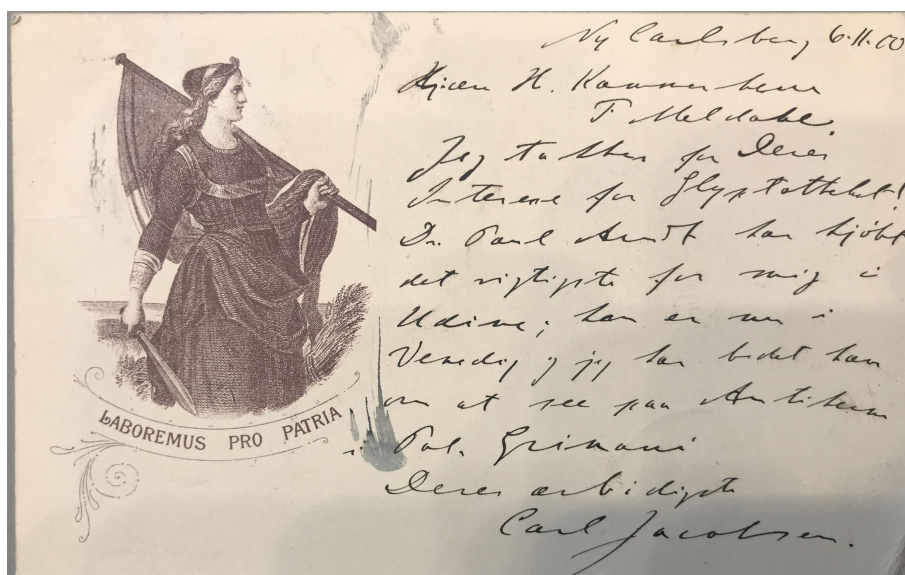 Ny Carlsberg 6.11.00
Kjære H. Kammerherre
F. Meldahl.
Jeg takker for Deres
Interesse for Glyptotheket!
Dr. Paul Arndt har kjöbt
det vigtigste for mig i
Udine; han er nu i
Venedig og jeg har bedt ham
om at see paa Antikerne
i Pal. Grimani
Deres ærbødigste
Carl Jacobsen.
LABOREMUS PRO PATRIA